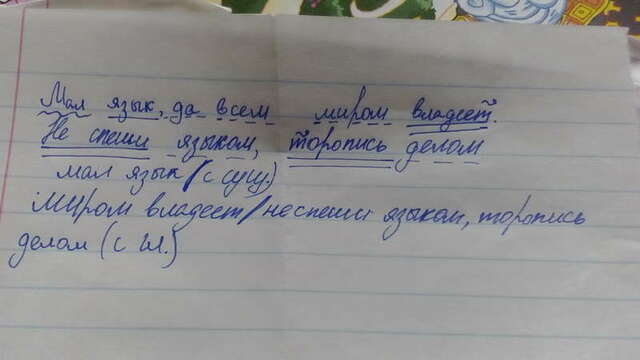 Мал язык, да всем миром владеет.
Не спеши языком, торопись делом
мал язык (с сущ.)
миром владеет/не спеши языком, торопись
делом (с гл.)